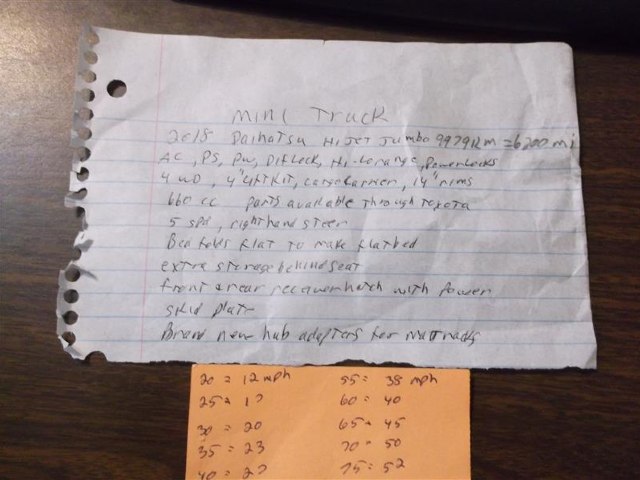 mini Truck
2015 Daihatsu HiJet Jumbo 9979 km = 6200 mi
AC, PS, PW, Diflock, Hi-Lo range, Powerlocks
4 WD, 4" Lift Kit, cargo carrier, 14" rims
660 cc parts available through toyota
5 spd, right hand steer
Bed folds flat to make flatbed
extra storage behind seat
front & rear receiver hatch with power
skid plate
Brand new hub adapters for mattracks
20 = 12 mph
25 = 17
30 = 20
35 = 23
40 = 27
55 = 38 mph
60 = 40
65 = 45
70 = 50
75 = 52